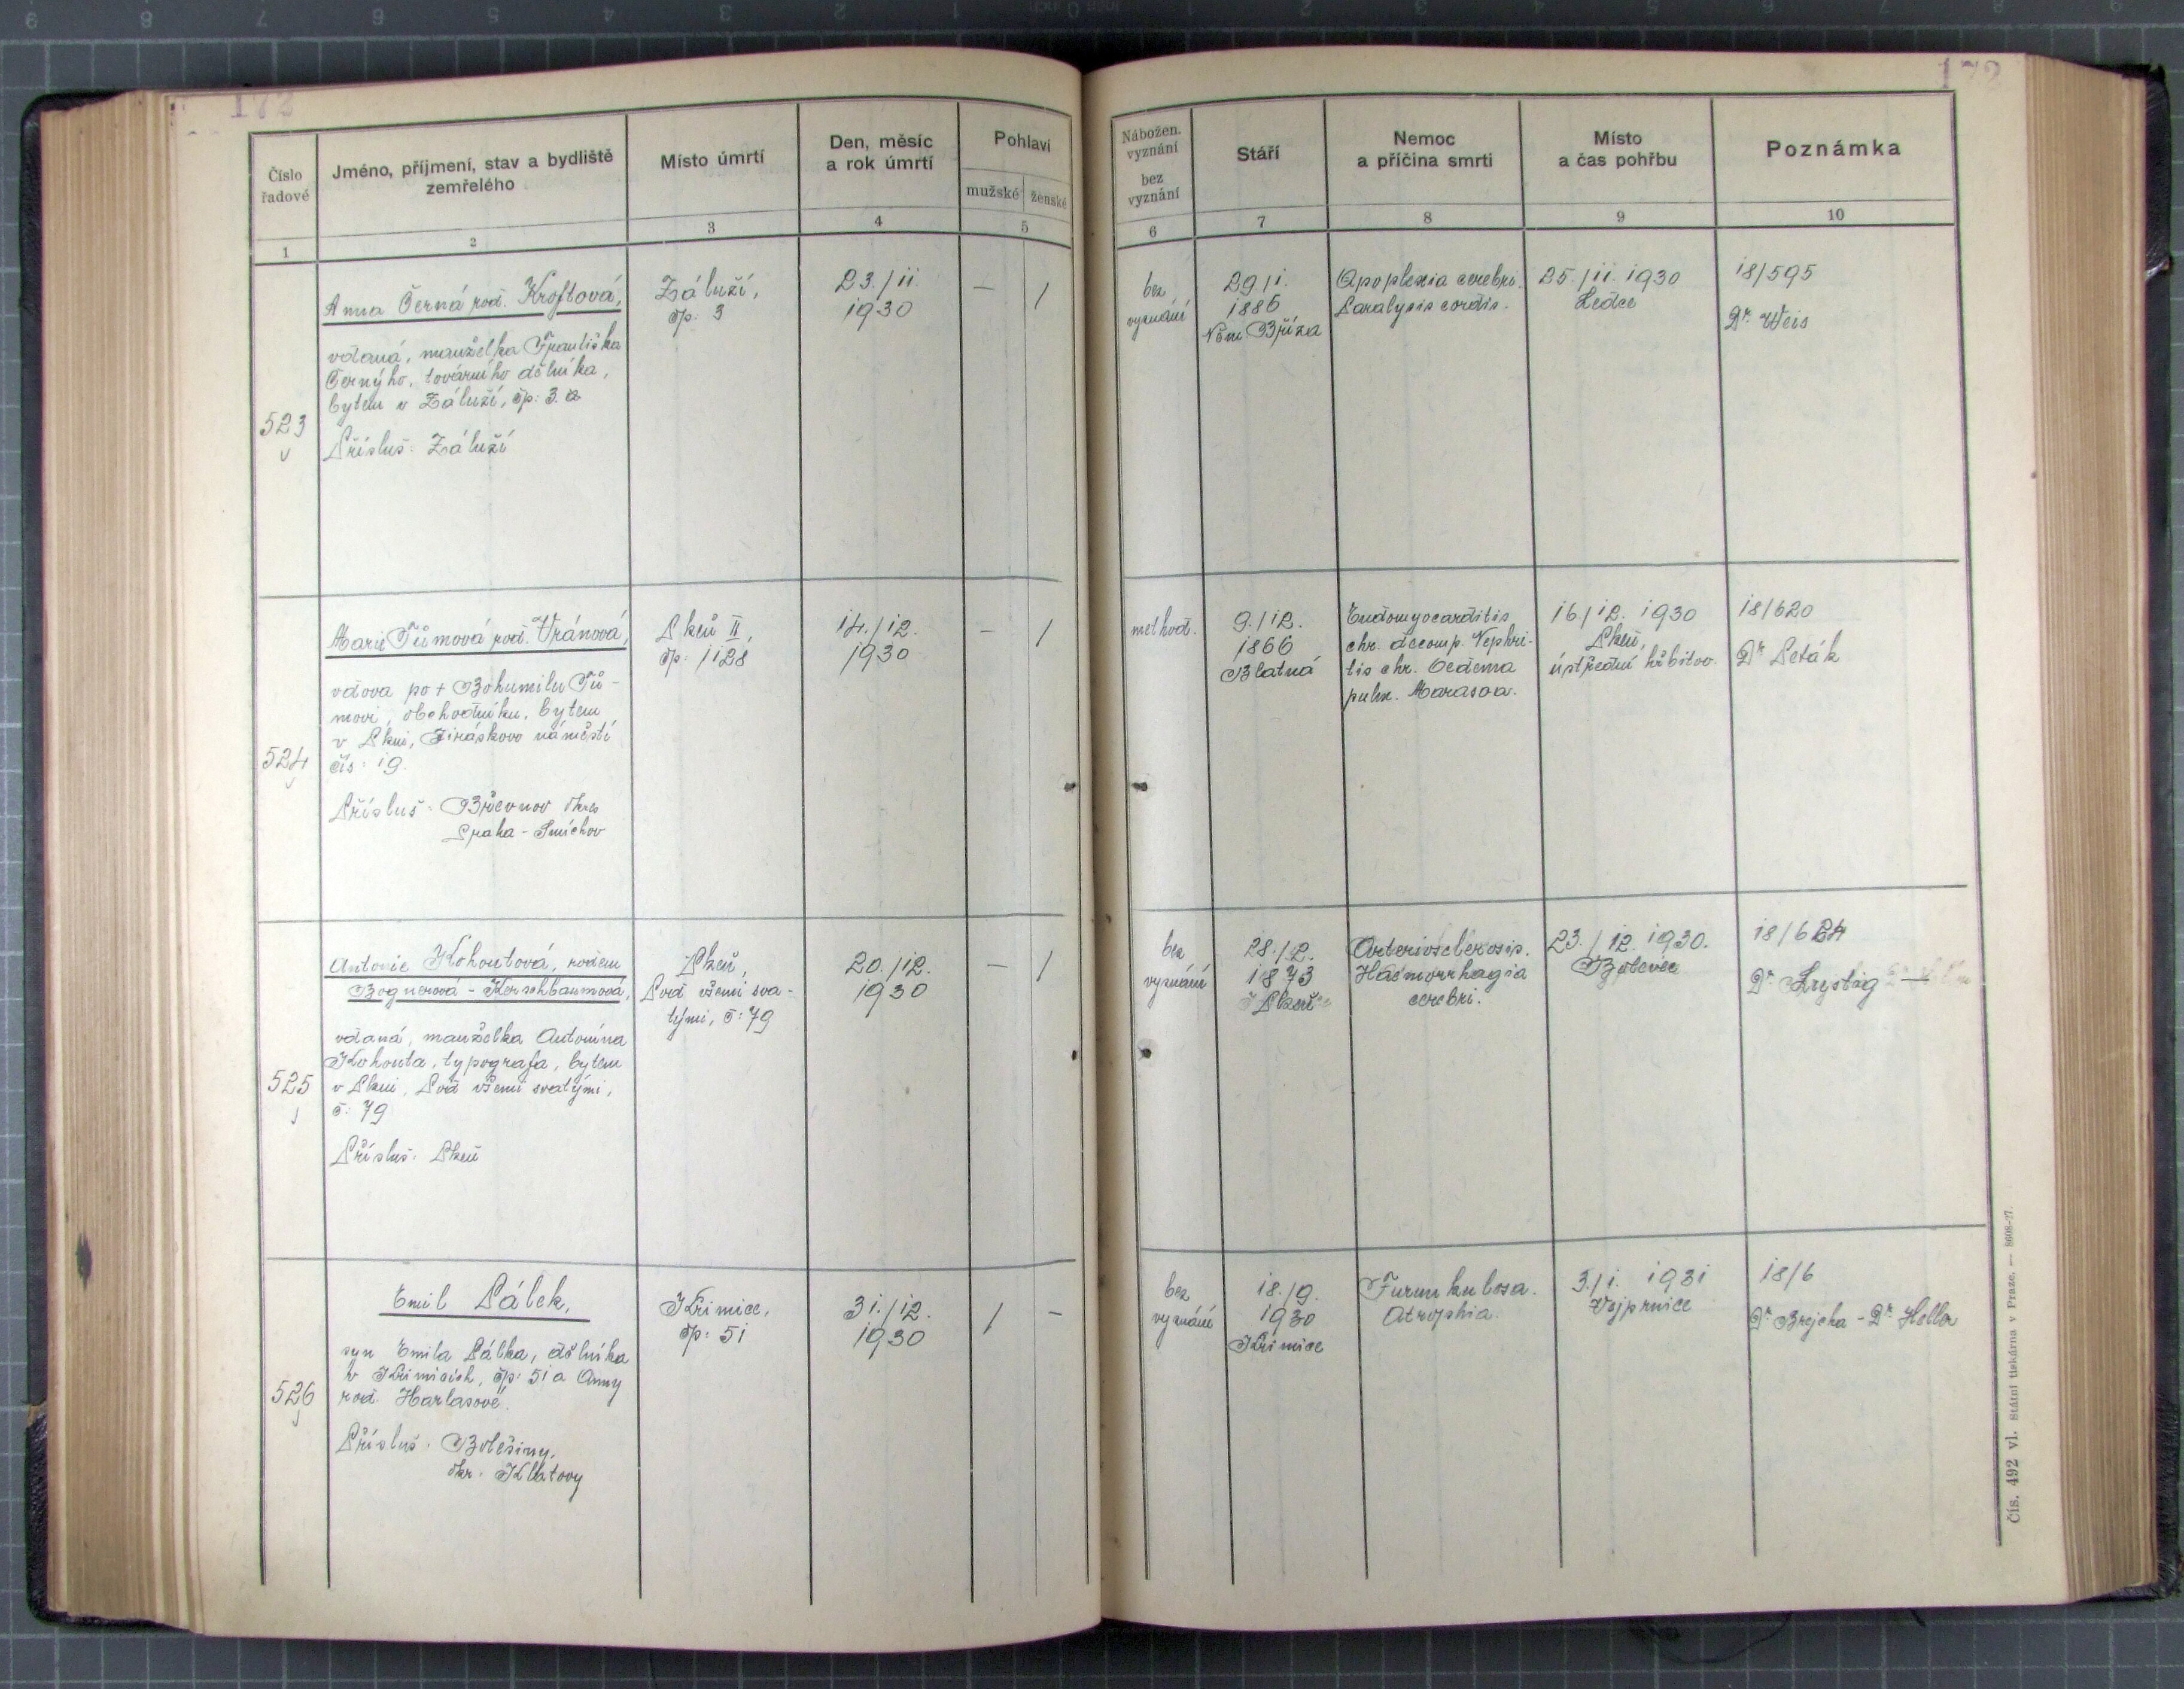 172
172
Číslo řadové
Jméno, příjmení, stav a bydliště
zemřelého
Místo úmrtí
Den, měsíc
a rok úmrtí
Pohlaví
mužské
ženské
Nábožen.
vyznání
bez
vyznání
Stáří
Nemoc
a příčina smrti
Místo
a čas pohřbu
Poznámka
1
2
3
4
5
6
7
8
9
10
523
Anna Černá roz. Kroftová,
vdaná, manželka Františka
Černýho, továrního dělníka,
bytem v Záluží, čp: 3. a
Přísluš: Záluží
Záluží,
čp: 3
23./11.
1930
— /
bez
vyznání
29/1.
1886
Něm. Bříza
Apoplexia cerebri.
Paralysis cordis.
25./11. 1930
Ledce
18/595
Dr. Weis
524
Marie Tůmová roz. Vránová,
vdova po + Bohumilu Tů-
movi, obchodníku, bytem
v Plzni, Jiráskovo náměstí
čís: 19.
Přísluš: Břevnov okres
Praha - Smíchov
Plzeň II,
čp: 1128
14./12.
1930
— /
method.
9./12.
1866
Blatná
Endomyocarditis
chr. decomp. Nephri-
tis chr. Oedema
pulm.
16./12. 1930
Plzeň,
ústřední hřbitov.
18/620
Dr. Peták
525
Antonie Kohoutová, rozen
Bognerová - Kerschbaumová,
vdaná, manželka Antonína
Kohouta, typografa, bytem
v Plzni, Pod všemi svatými,
č: 79
Přísluš: Plzeň
Plzeň,
Pod všemi sva-
tými, č: 79
20./12.
1930
— /
bez
vyznání
28./2.
1873
Plzeň
Arteriosclerosis.
Haemorrhagia
cerebri.
23./12. 1930.
Bolevec
18/624
Dr. Lustig
526
Emil Pálek,
syn Emila Pálka, dělníka
v Křimicích, čp: 51 a Anny
roz. Harlasové.
Přísluš: Bolešiny,
okr. Klatovy
Křimice,
čp: 51
31./12.
1930
/ —
bez
vyznání
18./9.
1930
Křimice
Furunkulosa.
Atrophia.
3./1. 1931
Vejprnice
18/6
Dr. Brejcha - Dr. Heller
Čís. 492 vl. Státní tiskárna v Praze. — 8608-27.